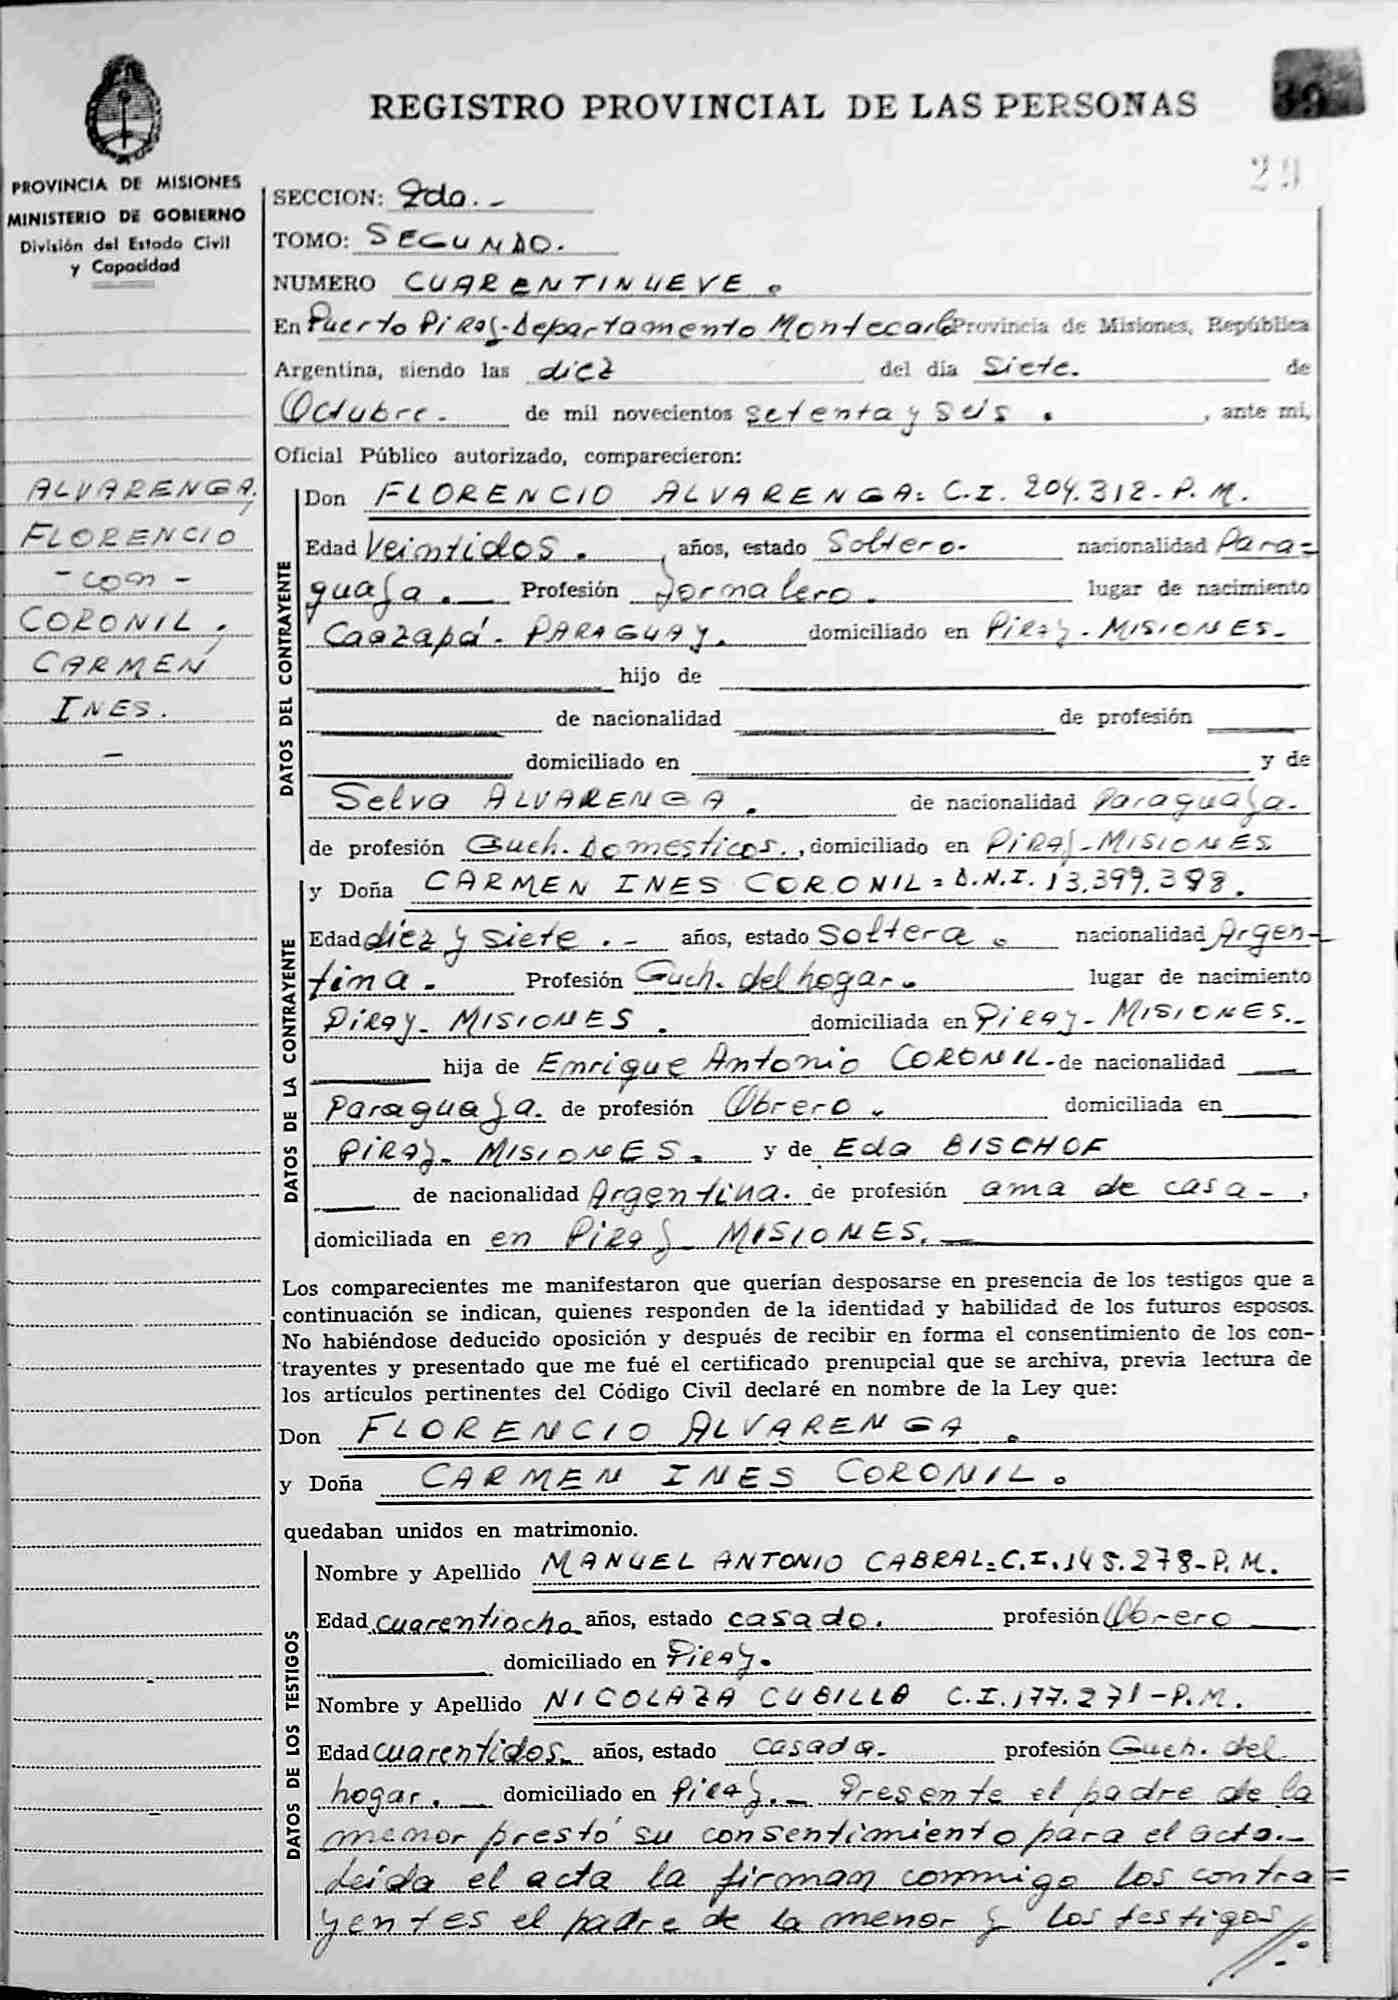 REGISTRO PROVINCIAL DE LAS PERSONAS
39
29
PROVINCIA DE MISIONES
MINISTERIO DE GOBIERNO
División del Estado Civil
y Capacidad
SECCION: 2da. -
TOMO: SEGUNDO.
NUMERO CUARENTINUEVE.
En Puerto Piray-Departamento Montecarlo Provincia de Misiones, República
Argentina, siendo las diez del día Siete. de
Octubre. de mil novecientos setenta y seis. , ante mi,
Oficial Público autorizado, comparecieron:
ALVARENGA,
FLORENCIO
- con -
CORONIL,
CARMEN
INES.
-
DATOS DEL CONTRAYENTE
Don FLORENCIO ALVARENGA= C.I. 204.312-P.M.
Edad Veintidos. , años, estado Soltero- nacionalidad Para=
guaya. Profesión Jornalero. lugar de nacimiento
Caazapá- PARAGUAY. domiciliado en Piray- MISIONES.
hijo de
de nacionalidad de profesión
domiciliado en y de
Selva ALVARENGA. de nacionalidad Paraguaya.
de profesión Queh. Domesticos. , domiciliado en PIRAY-MISIONES
DATOS DE LA CONTRAYENTE
y Doña CARMEN INES CORONIL= D.N.I. 13.399.398.
Edad diez y siete. - años, estado Soltera. nacionalidad Argen-
tina. Profesión Queh. del hogar. lugar de nacimiento
Piray- MISIONES. domiciliada en Piray- MISIONES.-
hija de Enrique Antonio CORONIL- de nacionalidad
Paraguaya. de profesión Obrero. domiciliada en
PIRAY- MISIONES. y de Eda BISCHOF
de nacionalidad Argentina. de profesión ama de casa- ,
domiciliada en en Piray MISIONES.
Los comparecientes me manifestaron que querían desposarse en presencia de los testigos que a
continuación se indican, quienes responden de la identidad y habilidad de los futuros esposos.
No habiéndose deducido oposición y después de recibir en forma el consentimiento de los con-
trayentes y presentado que me fué el certificado prenupcial que se archiva, previa lectura de
los artículos pertinentes del Código Civil declaré en nombre de la Ley que:
Don FLORENCIO ALVARENGA.
y Doña CARMEN INES CORONIL.
quedaban unidos en matrimonio.
DATOS DE LOS TESTIGOS
Nombre y Apellido MANUEL ANTONIO CABRAL=C.I. 145.278-P.M.
Edad cuarentiocho años, estado casado. profesión Obrero
domiciliado en Piray.
Nombre y Apellido NICOLAZA CUBILLA C.I. 177.271-P.M.
Edad cuarentidos- años, estado casada. profesión Queh. del
hogar. domiciliado en Piray.- Presente el padre de la
menor prestó su consentimiento para el acto.-
Leida el acta la firman conmigo los contra=
yentes el padre de la menor y los testigos